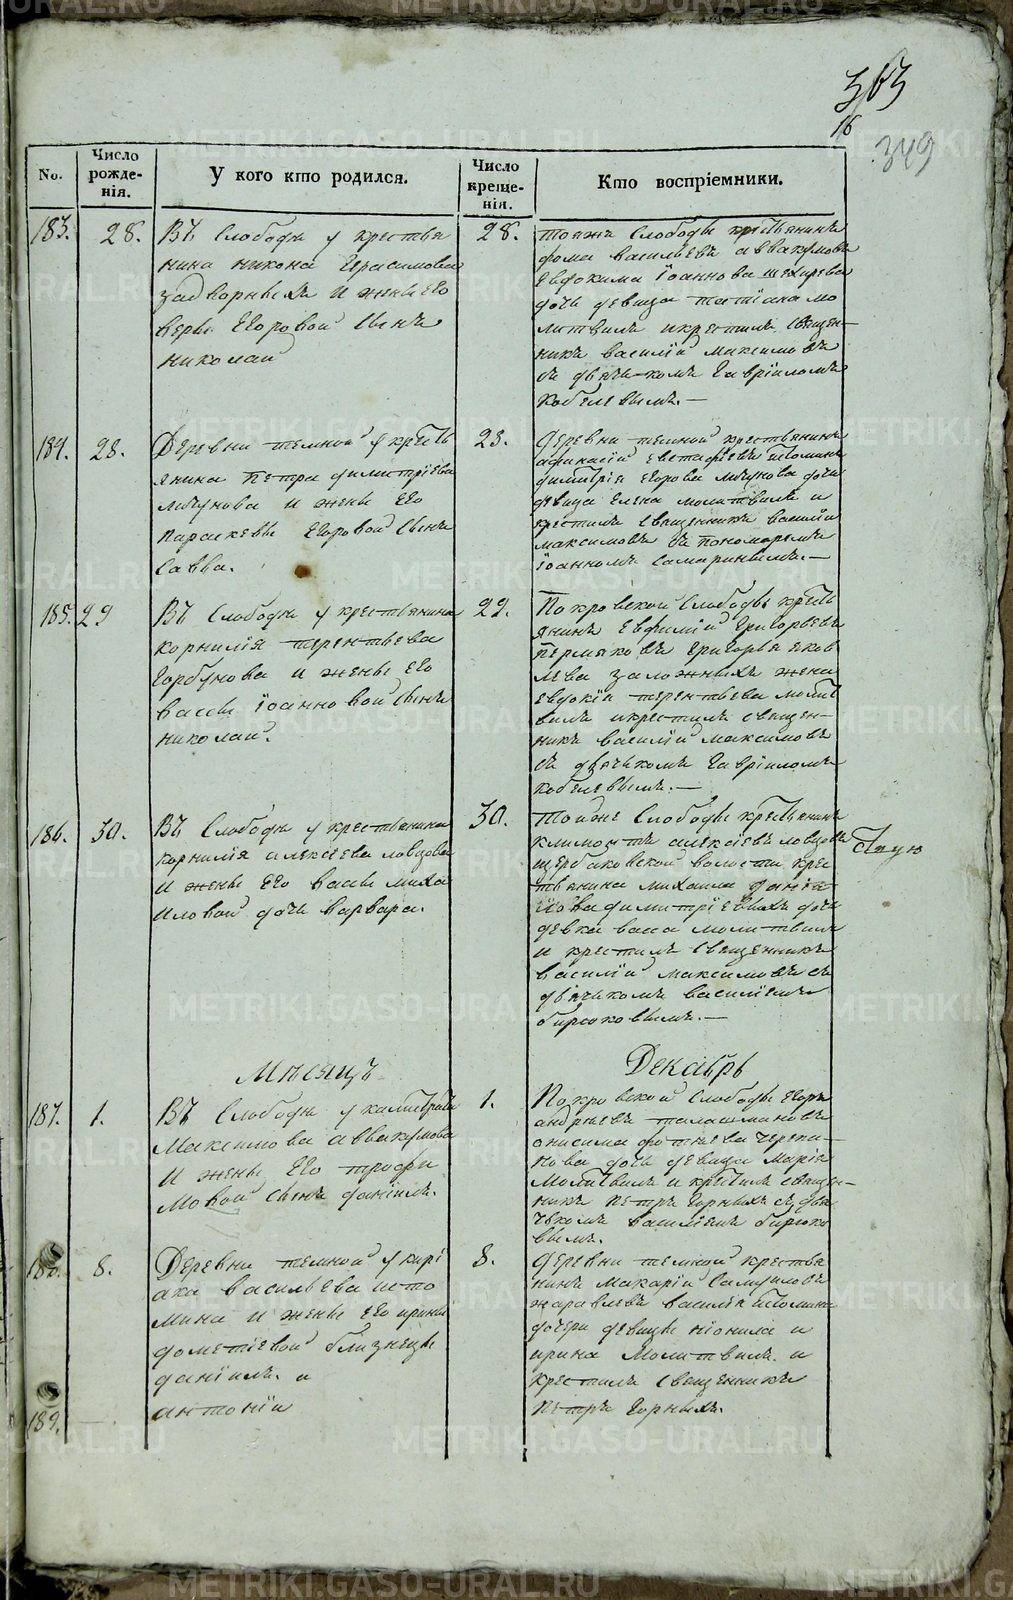 363
16
349
No.
Число рожде-нія.
У кого кто родился.
Число креще-нія.
Кто воспріемники.
183. 28.
Въ Слободѣ у крестья
нина никона Герасимова
задворныхъ и жены его
веры Егоровой Сынъ
николай
28.
тояжъ Слободы крестьянинъ
фома васильевъ аввакумовъ
Евдокима Іоаннова
дочь девица татіана мо
литвилъ икрестилъ Священ-
никъ василій Максимовъ
съ дьячь-комъ Гавріиломъ
кобелевымъ.—
184. 28.
Деревни темной у кресть
янина Петра димитріева
и жены Его
параскевы Егоровой Сынъ
Савва.
28.
деревни темной крестьянинъ
афанасій Евстафіевъ Истоминъ
димитрія Егорова дочь
девица Елена молитвилъ и
крестилъ Священникъ василій
максимовъ съ пономаремъ
Іоанномъ Самаринымъ.—
185. 29
Въ Слободѣ у крестьянина
корнилія терентьева
Горбунова и жены Его
вассы Іоанновой Сынъ
николай.
29.
Покровской Слободы кресть
янинъ Евфимій Григорьевъ
пермяковъ Григорья яков
лева заложныхъ жена
Евдокія терентьева молит
вилъ икрестилъ Священ-
никъ василій максимовъ
съ дьячькомъ Гавріиломъ
кобелевымъ.—
186. 30.
Въ Слободѣ у крестьянина
корнилія алексіева ловцова
и жены Его вассы миха
иловой дочь варвара.
30.
тойже Слободы крестьянинъ
климонтъ алексіевъ ловцовъ
щербаковской волости крес
тьянина михаила даніи
лова димитріевыхъ дочь
девка васса молитвилъ
и крестилъ Священникъ
василій максимовъ съ
дьячькомъ василіемъ
бирюковымъ.—
Мѣсяцъ
Декабрь
187. 1.
Въ Слободѣ у калистрата
Максимова аввакумова
и жены Его трофи
мовой Сынъ даніилъ.
1.
Покровской Слободы Егоръ
андреевъ талашмановъ
онисима фотіева черепа-
нова дочь девица Марія
Молитвилъ и крестилъ Священ-
никъ петръ Горныхъ съ дья
чькомъ василіемъ бирюко
вымъ.
188. 8.
Деревни темной у кирі
ака васильева исто
мина и жены Его ирины
дометіевой близнецы
даніилъ. и
антоній
8.
деревни темной крестья
нинъ макарій Самуиловъ
жаравлевъ василья Истомина
дочери девицы неонила и
ирина Молитвилъ. и
крестилъ Священникъ
петръ Горныхъ.
189.
METRIKI.GASO-URAL.RU